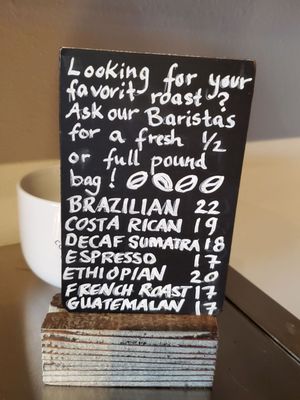 Looking for your
favorit roast?
Ask our Baristas
for a fresh 1/2
or full pound
bag!
BRAZILIAN 22
COSTA RICAN 19
DECAF SUMATRA 18
ESPRESSO 17
ETHIOPIAN 20
FRENCH ROAST 17
GUATEMALAN 17